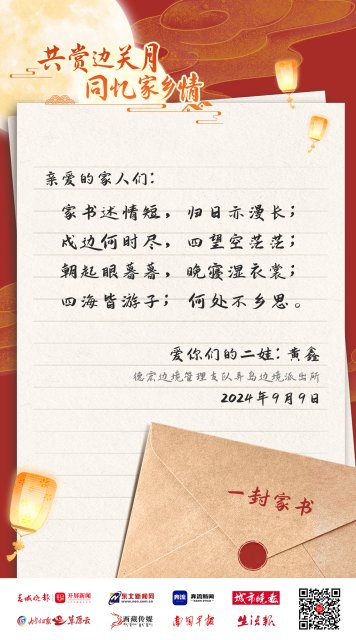 共赏边关月
同忆家乡情
亲爱的家人们：
家书述情短，归日亦漫长；
戍边何时尽，四望空茫茫；
朝起眼暮暮，晚寝湿衣裳；
四海皆游子；何处不乡思。
爱你们的二娃：黄鑫
德宏边境管理支队弄岛边境派出所
2024年9月9日
一封家书
春城晚报 开屏新闻 东北新闻网 www.nen.com.cn 奔流 奔流新闻 城市晚报
内蒙古日报 草原云 西藏传媒 南国早报 生活报